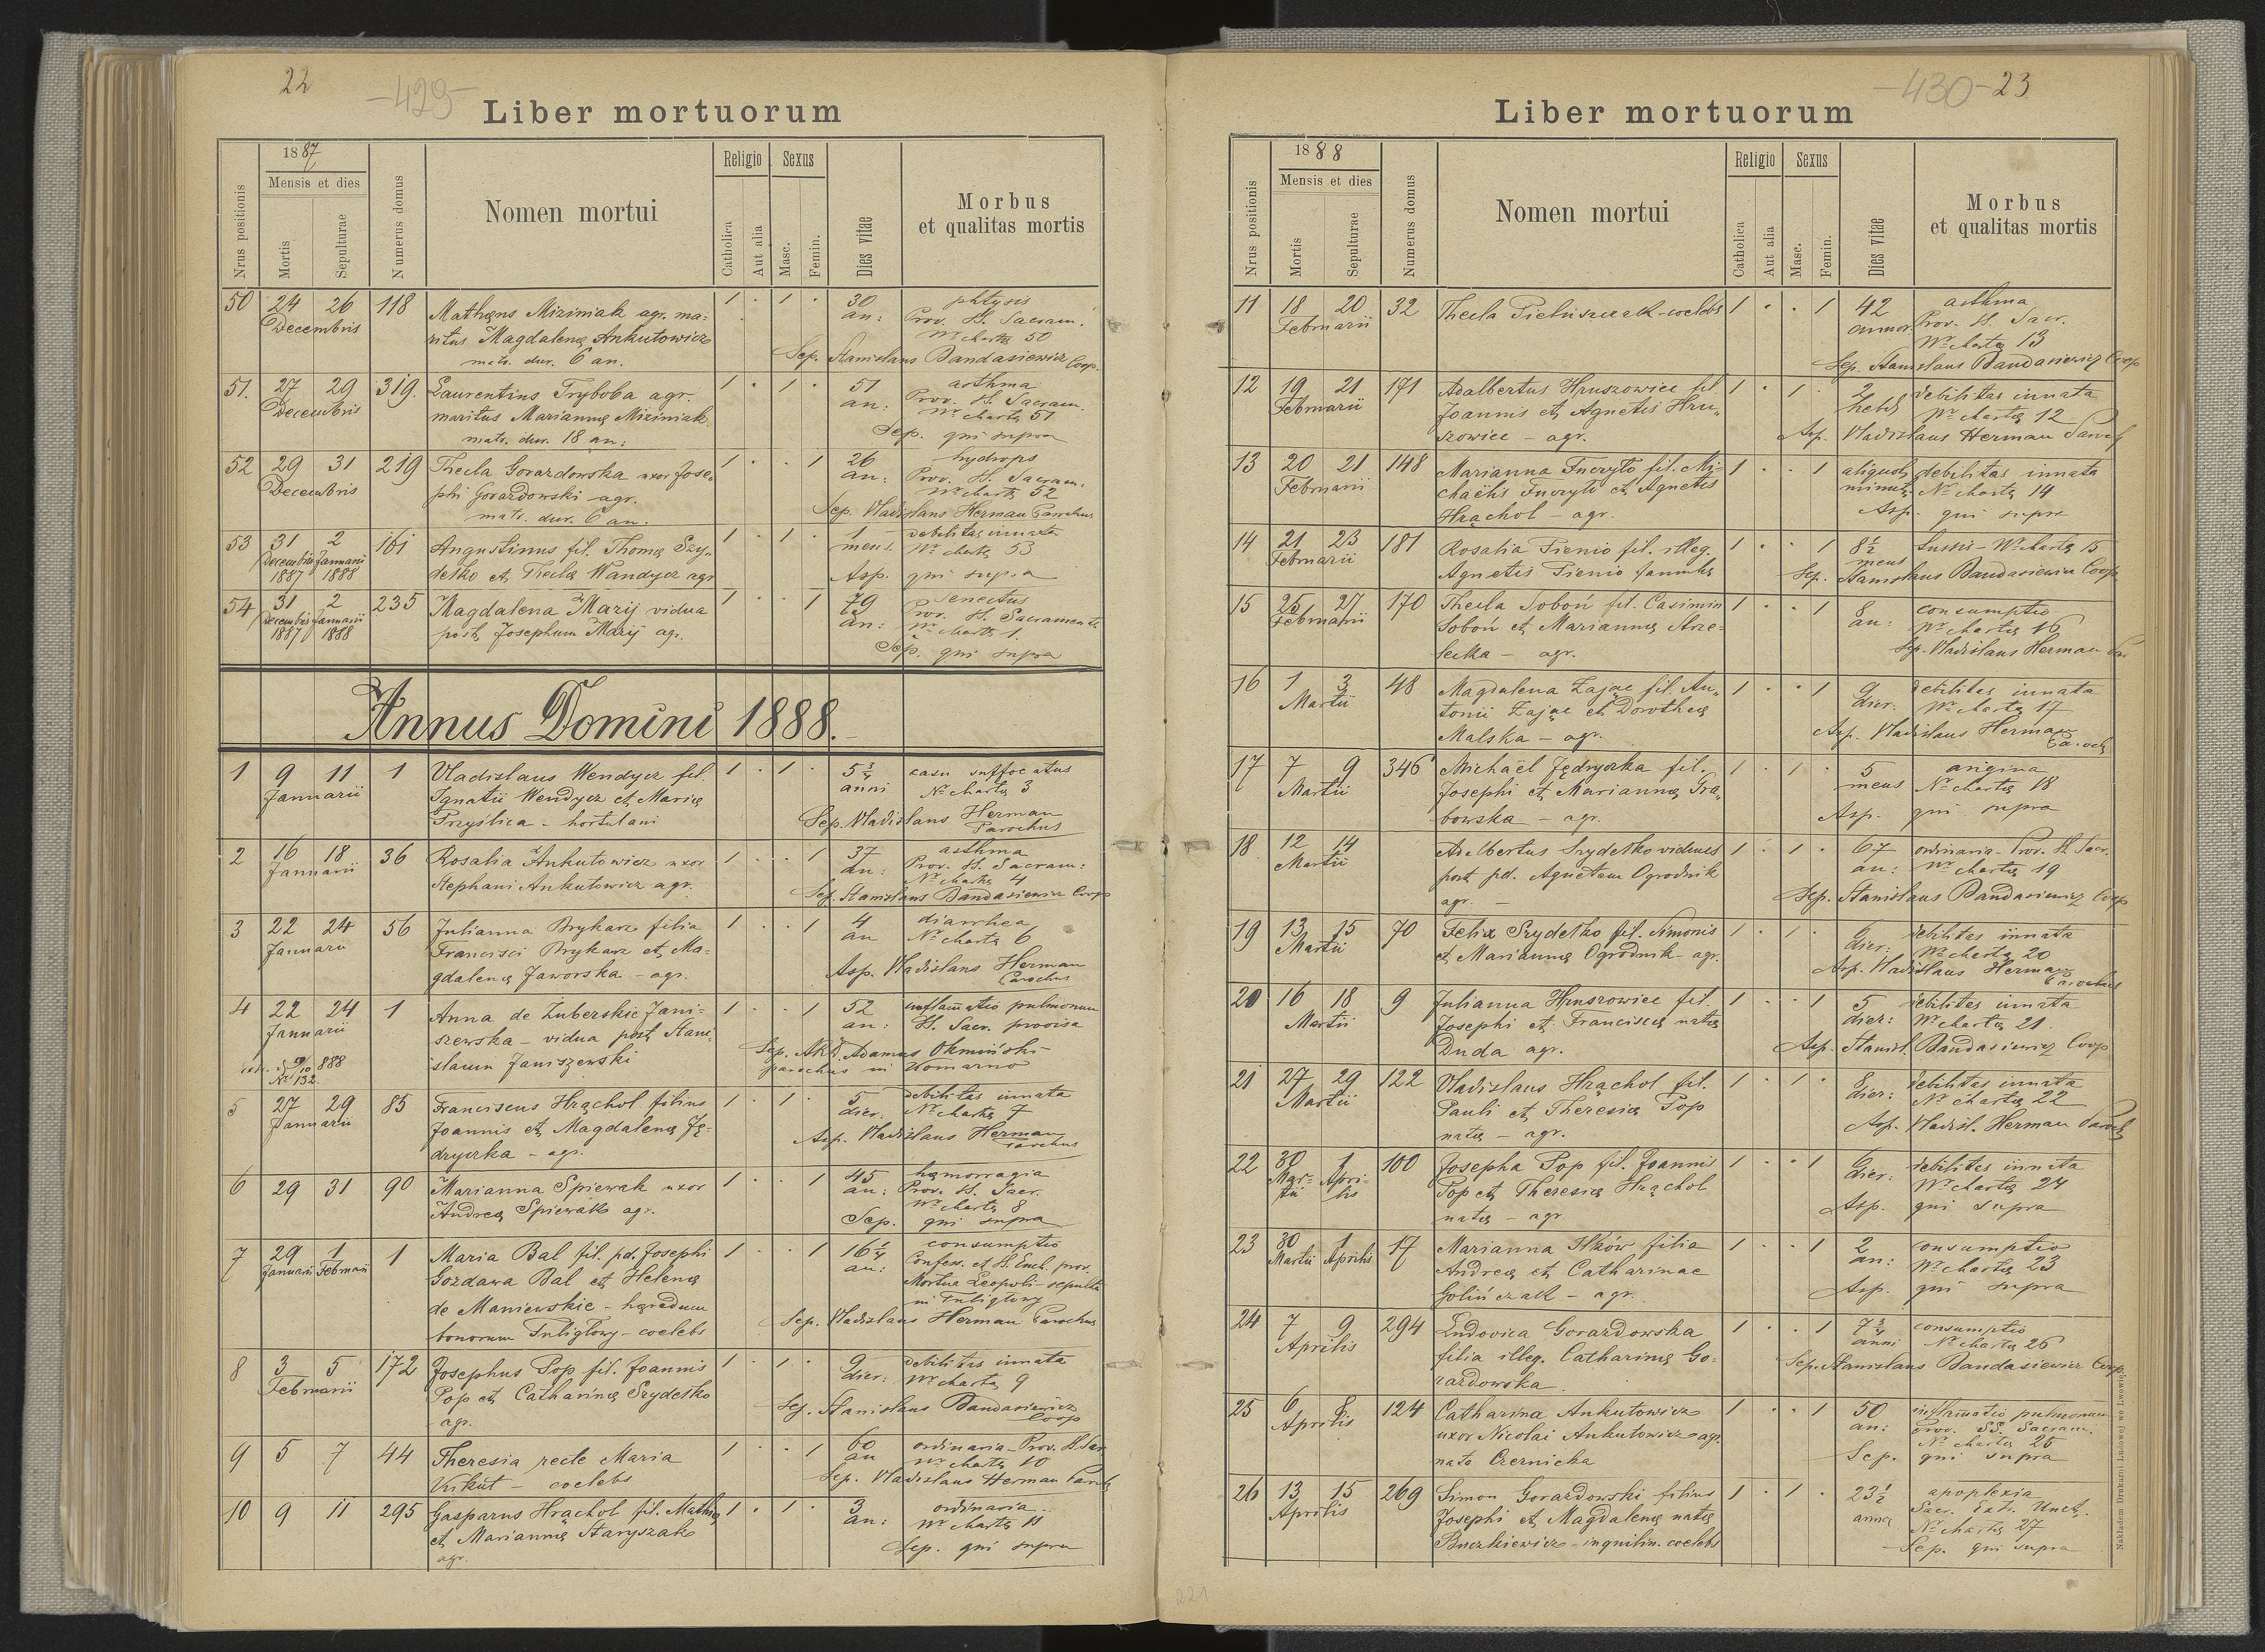 22
-429-
Liber mortuorum
Nrus positionis
1887
Mensis et dies
Mortis
Sepulturae
Numerus domus
Nomen mortui
Religio
Catholica
Aut alia
Sexus
Masc.
Femin.
Dies vitae
Morbus
et qualitas mortis
50 24 26 118 Mathęus Miziniak agr. ma- 1 · 1 · 30 phtysis
Decembris ritus Magdalenę Ankutowicz an: Prov. S. Sacram.
matr. dur. 6 an. Nr chartę 50
Sep. Stanislaus Bandasiewicz Coop.
51. 27 29 319. Laurentius Tryboba agr. 1 · 1 · 51 asthma
Decembris maritus Mariannę Miziniak an: Prov. S. Sacram.
matr. dur. 18 an: Nr chartę 51
Sep. qui supra
52 29 31 219 Thecla Gorazdowska uxor Jose- 1 · · 1 26 hydrops
Decembris phi Gorazdowski agr. an: Prov. S. Sacram.
matr. dur. 6 an. Nr chartę 52
Sep. Vladislaus Herman Parochus
53 31 2 161 Augustinus fil. Thomę Szy- 1 · 1 · 1 debilitas innata
Decembris Januarii dełko et Theclę Wandycz agr mens. Nr chartę 53
1887 1888 Asp. qui supra
54 31 2 235 Magdalena Mazij vidua 1 · · 1 79 senectus
Decembris Januarii post Josephum Mazij agr. an: Prov. S. Sacramentis
1887 1888 Nr chartę 1.
Sep. qui supra
Annus Domini 1888.
1 9 11 1 Vladislaus Wendycz fil. 1 · 1 · 5 3/4 casu suffocatus
Januarii Ignatii Wendycz et Marię anni Nr chartę 3
Przyślica - hortulani Sep. Vladislaus Herman
Parochus
2 16 18 36 Rosalia Ankutowicz uxor 1 · · 1 37 asthma
Januarii Stephani Ankutowicz agr. an: Prov. S. Sacram:
Nr chartę 4
Sep. Stanislaus Bandasiewicz Coop
3 22 24 56 Julianna Brykarz filia 1 · · 1 4 diarrhea
Januarii Francisci Brykarz et Ma- an Nr chartę 6
gdalenę Jaworska - agr. Asp. Vladislaus Herman
Parochus
4 22 24 1 Anna de Zuberskie Jani- 1 · · 1 52 inflam̄atio pulmonum
Januarii szewska - vidua post Stani- an: S. Sacr. provisa
slaum Janiszewski Sep. Adamus Okmiński
888 parochus in Komarno
Nr 132.
5 27 29 85 Franciscus Hrąchol filius 1 · 1 · 5 debilitas innata
Januarii Joannis et Magdalenę Ję- dier. Nr chartę 7
dryczka - agr. Asp. Vladislaus Herman
Parochus
6 29 31 90 Marianna Spiewak uxor 1 · · 1 45 hęmorragia
Andreę Spiewak agr. an: Prov. S. Sacr.
Nr chartę 8
Sep. qui supra
7 29 1 1 Maria Bal fil. pd. Josephi 1 · · 1 16 1/4 consumptio
Januarii Februarii Gozdawa Bal et Helenę an: Confess. et S. Euch. prov.
de Maniewskie - hęredum Mortua Leopoli - sepulta
bonorum Tuligłowy - coelebs in Tuligłowy
Sep. Vladislaus Herman Parochus
8 3 5 172 Josephus Pop fil. Joannis 1 · 1 · 9 debilitas innata
Februarii Pop et Catharinę Szydełko dier: Nr chartę 9
agr. Sep. Stanislaus Bandasiewicz
Coop
9 5 7 44 Theresia recte Maria 1 · · 1 60 ordinaria - Prov. S. Sac
Kirkut - coelebs an Nr chartę 10
Sep. Vladislaus Herman Paroch
10 9 11 295 Gasparus Hrąchol fil. Mathię 1 · 1 · 3 ordinaria
et Mariannę Staryszak an: Nr chartę 11
agr. Sep. qui supra
-430- 23
Liber mortuorum
Nrus positionis
1888
Mensis et dies
Mortis
Sepulturae
Numerus domus
Nomen mortui
Religio
Catholica
Aut alia
Sexus
Masc.
Femin.
Dies vitae
Morbus
et qualitas mortis
11 18 20 32 Thecla - coelebs 1 · · 1 42 asthma
Februarii annor. Prov. S. Sacr.
Nr chartę 13
Sep. Stanislaus Bandasiewicz Coop
12 19 21 171 Adalbertus Hruszowiec fil. 1 · 1 · 2 debilitas innata
Februarii Joannis et Agnetis Hru- hebd Nr chartę 12
szowiec - agr. Asp. Vladislaus Herman Paroch
13 20 21 148 Marianna Fuczyło fil. Mi- 1 · · 1 aliquot debilitas innata
Februarii chaëlis Fuczyło et Agnetis minut. Nr chartę 14
Hrąchol - agr. Asp. qui supra
14 21 23 181 Rosalia Fienio fil. illeg. 1 · · 1 8 1/2 tussis - Nr chartę 15
Februarii Agnetis Fienio famulę mens
Sep. Stanislaus Bandasiewicz Coop
15 25 27 170 Thecla Soboń fil. Casimiri 1 · · 1 8 consumptio
Februarii Soboń et Mariannę Strze- an: Nr chartę 16
lecka - agr. Sep. Vladislaus Herman Par
16 1 3 48 Magdalena Zając fil. An- 1 · · 1 9 debilitas innata
Martii tonii Zając et Dorotheę dier. Nr chartę 17
Malska - agr. Asp. Vladislaus Herman
Paroch
17 7 9 346 Michaël Jędryczka fil. 1 · 1 · 5 angina
Martii Josephi et Mariannę Gra- mens Nr chartę 18
bowska - agr. Asp. qui supra
18 12 14 Adalbertus Szydełko viduus 1 · 1 · 67 ordinaria - Prov. S. Sacr.
Martii post pd. Agnetem Ogrodnik an: Nr chartę 19
agr. - Sep. Stanislaus Bandasiewicz Coop
19 13 15 70 Felix Szydełko fil. Simonis 1 · 1 · 9 debilitas innata
Martii et Mariannę Ogrodnik - agr. dier: Nr chartę 20
Asp. Vladislaus Herman
Parochus
20 16 18 9 Julianna Hruszowiec fil. 1 · · 1 5 debilitas innata
Martii Josephi et Franciscę natę dier: Nr chartę 21.
Duda agr. Asp. Stanisl. Bandasiewicz Coop
21 27 29 122 Vladislaus Hrąchol fil. 1 · 1 · 8 debilitas innata
Martii Pauli et Theresię Pop dier: Nr chartę 22
natę - agr. Asp. Vladisl. Herman Paroch
22 30 1 100 Josepha Pop fil. Joannis 1 · · 1 6 debilitas innata
Mar- Apri- Pop et Theresię Hrąchol dier: Nr chartę 24
tii lis natę - agr Asp. qui supra
23 30 1 17 Marianna Ilków filia 1 · · 1 2 consumptio
Martii Aprilis Andreę et Catharinae an: Nr chartę 23
Golińczak - agr. Asp. qui supra
24 7 9 294 Ludovica Gorazdowska 1 · · 1 7 3/4 consumptio
Aprilis filia illeg. Catharinę Go- anni Nr chartę 26
razdowska. Sep. Stanislaus Bandasiewicz Coop
25 6 8 124 Catharina Ankutowicz 1 · · 1 50 inflam̄atio pulmonum
Aprilis uxor Nicolai Ankutowicz agr. an: Prov. SS. Sacram.
nata Czernicka Nr chartę 25
Sep. qui supra
26 13 15 269 Simon Gorazdowski filius 1 · 1 · 23 1/2 apoplexia
Aprilis Josephi et Magdalenę natę anno Sacr. Ext. Unct.
Buczkiewicz - inquilin. coelebs Nr chartę 27
Sep. qui supra
Nakładem Drukarni Ludowej we Lwowie
221